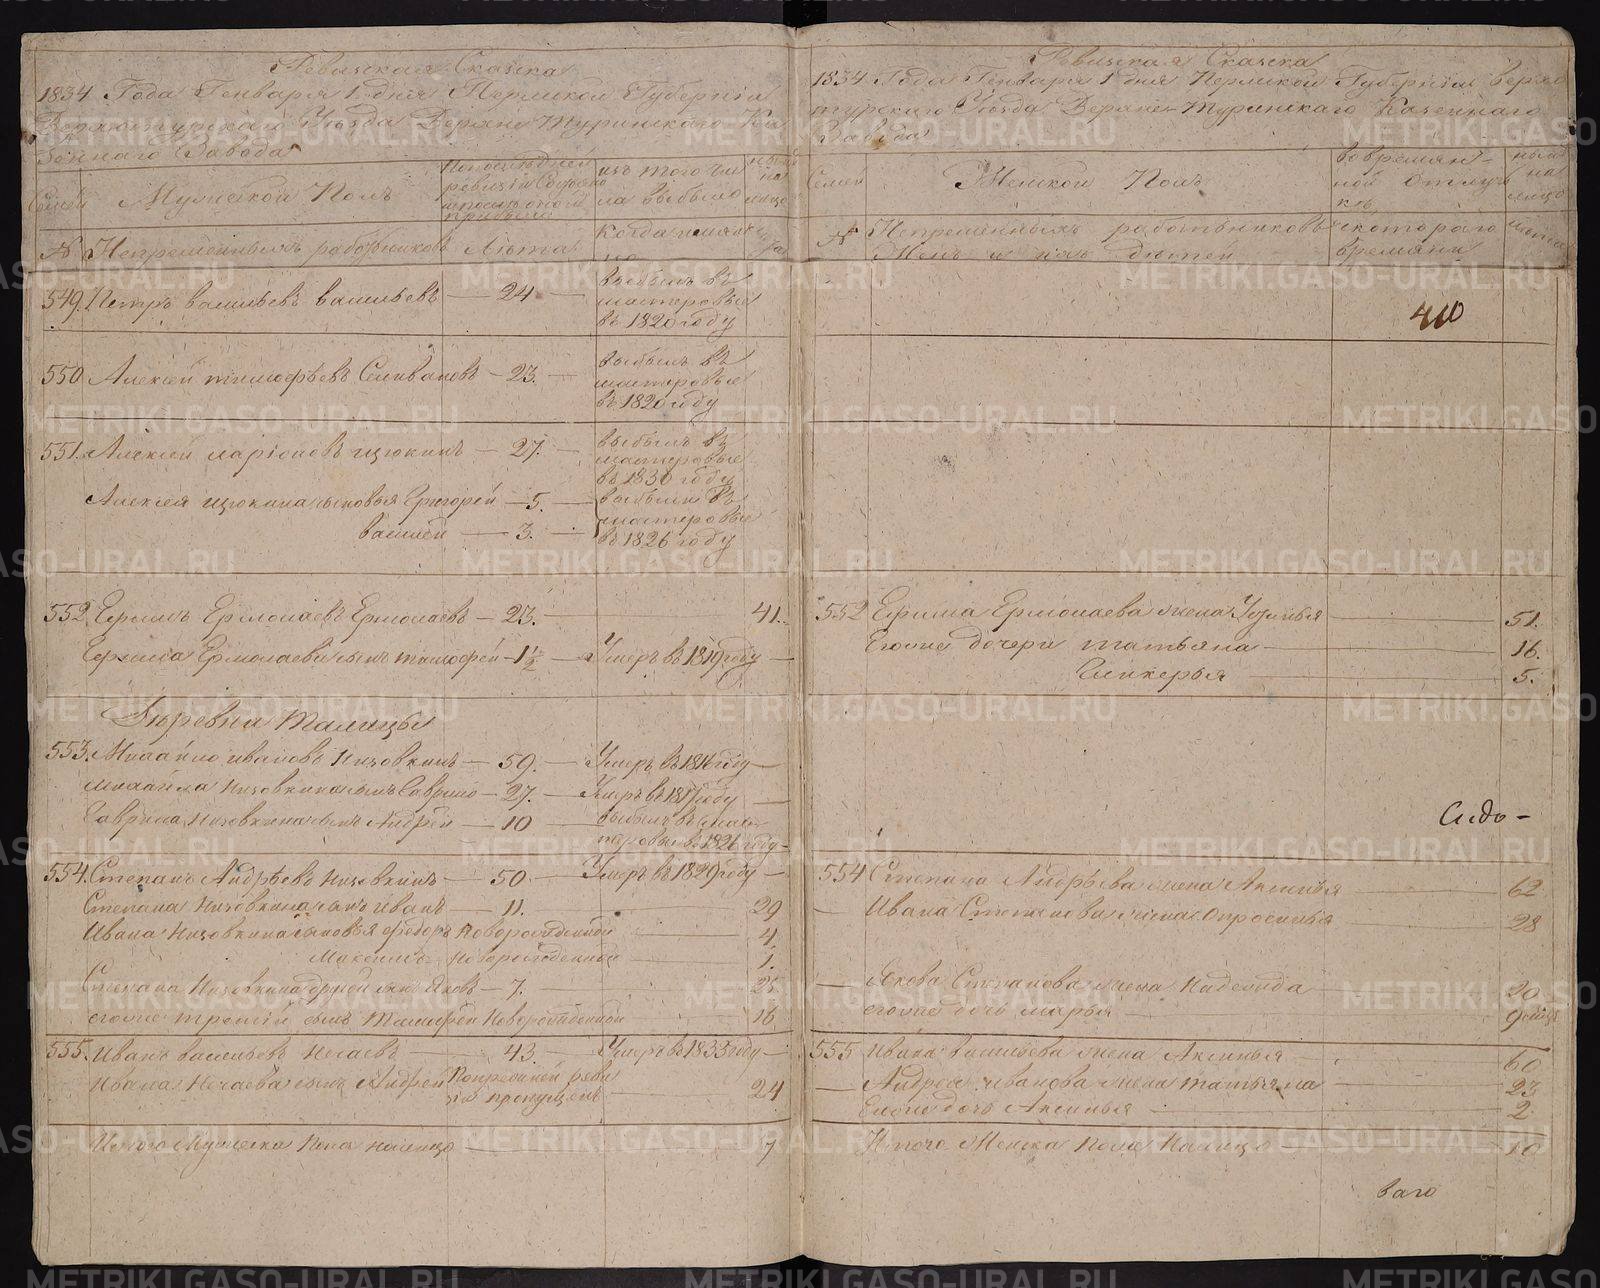 Ревизская Сказка
1834 Года Генваря 1 дня Пермской Губернiи
Верхотурскаго Уѣзда Верхне Туринскаго Ка
зеннаго Завода
Семей
Мужеской Полъ
По последней
ревизiи Состояло
и после оной
прибыло
изъ того чи
сла выбыло
ныне
на
лицо
№
Непременныхъ работниковъ
Лѣта
Когда имянно
549. Петръ васильевъ васильевъ — 24 — выбылъ въ
мастеровые
въ 1820 году
550 Алексей тимофѣевъ Селивановъ — 23. — выбылъ въ
мастеровые
въ 1820 году
551. Алексей ларiоновъ щюкинъ — 27. — выбылъ въ
мастеровые
въ 1830 году
Алексея щюкина сыновья Григорей — 5. — выбыли въ
василей — 3. — мастеровые
въ 1826 году
552 Ефимъ Ермолаевъ Ермолаевъ — 23. — 41.
Ефима Ермолаева сынъ тимофей — 1 1/2 — Умеръ въ 1819 году —
Деревни Талицы
553. Михайло ивановъ Низовкинъ — 59. — Умеръ въ 1816 году —
михайла Низовкина сынъ Гаврило — 27. — Умеръ въ 1817 году —
Гаврила Низовкина сынъ Андрей — 10 — выбылъ въ мас
теровые в 1826 году —
554. Степанъ Андрѣевъ Низовкинъ — 50 — Умеръ въ 1829 году —
Степана Низовкина сынъ иванъ — 11. — 29
Ивана Низовкина сыновья федоръ Новорожденной — 4
Максимъ Новорожденной — 1.
Степана Низовкина другой сынъ Яковъ — 7. — 25
егоже третiй сынъ Тимофей Новорожденной — 16
555. Иванъ васильевъ Нечаевъ — 43. — Умеръ въ 1833 году —
Ивана Нечаева сынъ Андрей По прежней реви
зiи пропущенъ — 24
Итого Мужеска Пола налицо — 7
Ревизская Сказка
1834 Года Генваря 1 дня Пермской Губернiи Верхо
турскаго Уѣзда Верхне Туринскаго Казеннаго
Завода
Семей
Женской Полъ
во времян-
ной отлуч
кѣ
ныне
на
лицо
№
Непременныхъ работниковъ
Жены и ихъ дѣтей
скотораго
времяни
лѣта
410
552 Ефима Ермолаева жена Устинья — 51.
Егоже дочери татьяна — 16.
Гликерья — 5.
Сидо -
554 Степана Андрѣева жена Аксинья — 62
— Ивана Степанова жена Апросинья — 28
— Якова Степанова жена Надежда — 20
егоже дочь марья — 9 месяц
555 Ивана васильева жена Аксинья — 60
— Андрея иванова жена татьяна — 23
Егоже дочь Аксинья — 2
Итого Женска Пола Налицо — 10
ваго
METRIKI.GASO-URAL.RU